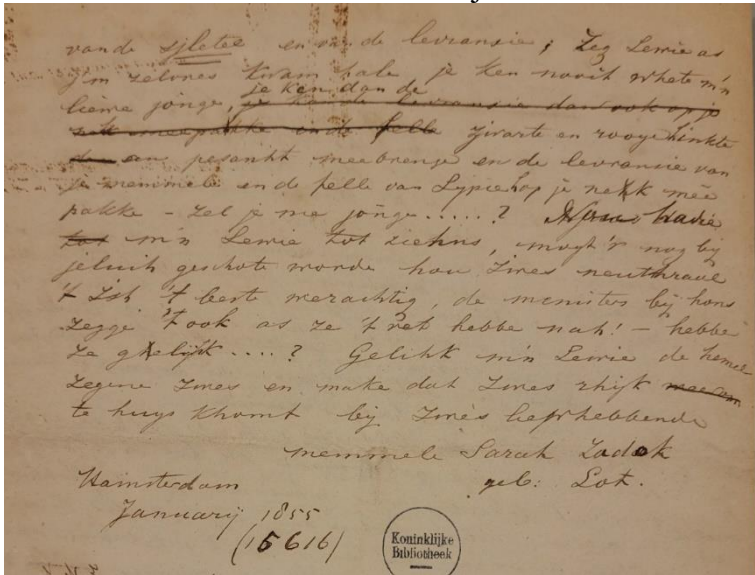 van de sjletee en van de levransie; Zeg Lewie as
j'm zelvres kwam hale je ken nooit whete m'n
je ken dan de
lieme jonge,
zwarte en rooye Linkte
en persent meebrenge en de levransie van
je memmele en de felle van Lypie hop je nekk mee
pakke - zel je me jonge.....? Nou badie
m'n Lewie tot ziehns, mogt 'r nog bij
jeluih geschote worde hou Zwes neuthraal
't Ish 't beste werachtig, de menisters bij hons
zegge 't ook as ze 't ret hebbe nah! - hebbe
ze gelijk....? Gelikk m'n Lewie de hemel
zegene Zwes en make dat Zwes rhijk
te huys khomt bij Zwes liefhebbende
memmele Sarah Zadok
Hamsterdam geb: Lot.
Januarij 1855
(15616)
Koninklijke
Bibliotheek